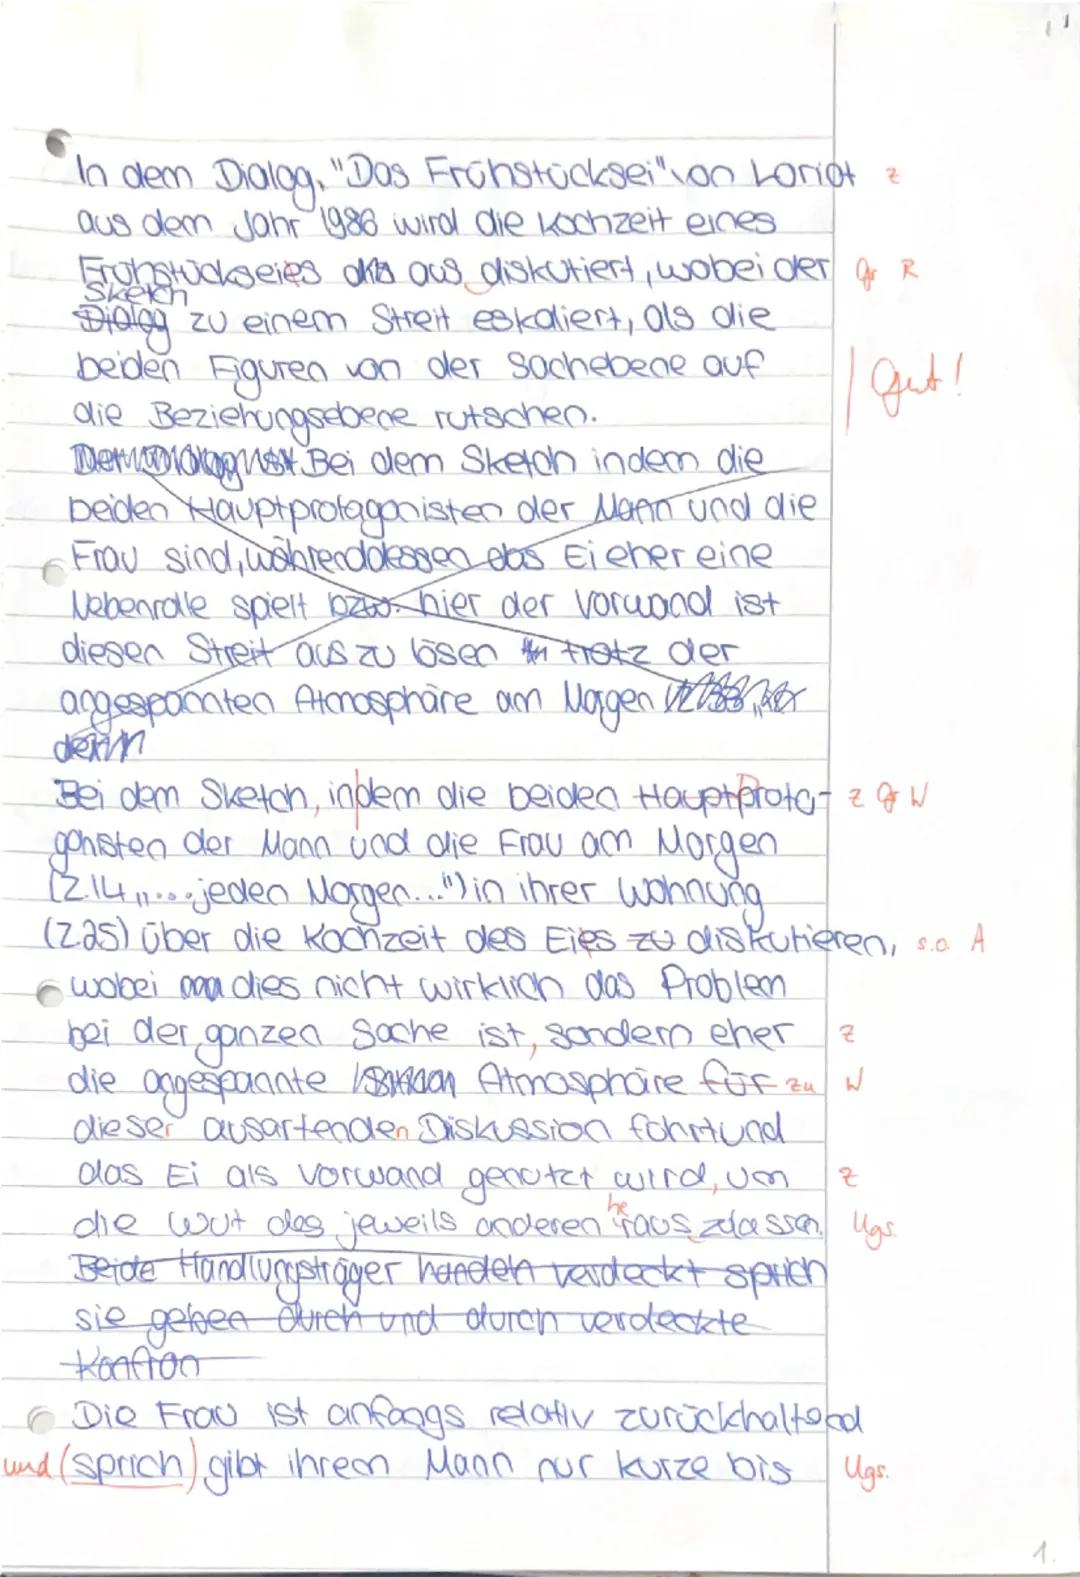 In dem Dialog, "Das Frühstücksei" von Loriot z
aus dem Jahr 1986 wird die Kochzeit eines
Frühstückseies aus diskutiert, wobei der Gr R
Sketch
Dialog zu einem Streit eskaliert, als die
beiden Figuren von der Sachebene auf Gut!
die Beziehungsebene rutschen.
Bei dem Sketch indem die
beiden Hauptprotagonisten der Mann und die
Frau sind, währenddessen das Ei eher eine
Nebenrolle spielt bzw. hier der Vorwand ist
diesen Streit aus zu lösen trotz der
angespannten Atmosphäre am Morgen
denn
Bei dem Sketch, indem die beiden Hauptprota- z Gr W
gonisten der Mann und die Frau am Morgen
(Z.14 "...jeden Morgen...") in ihrer Wohnung
(Z.25) über die Kochzeit des Eies zu diskutieren, s.o. A
wobei dies nicht wirklich das Problem
bei der ganzen Sache ist, sondern eher z
die angespannte Atmosphäre für zu W
dieser ausartenden Diskussion führt und
das Ei als Vorwand genutzt wird, um z
he
die Wut des jeweils anderen raus zulassen. Ugs.
Beide Handlungsträger handeln verdeckt sprich
sie geben durch und durch verdeckte
Konfron
Die Frau ist anfangs relativ zurückhaltend
und (sprich) gibt ihrem Mann nur kurze bis Ugs.
1.